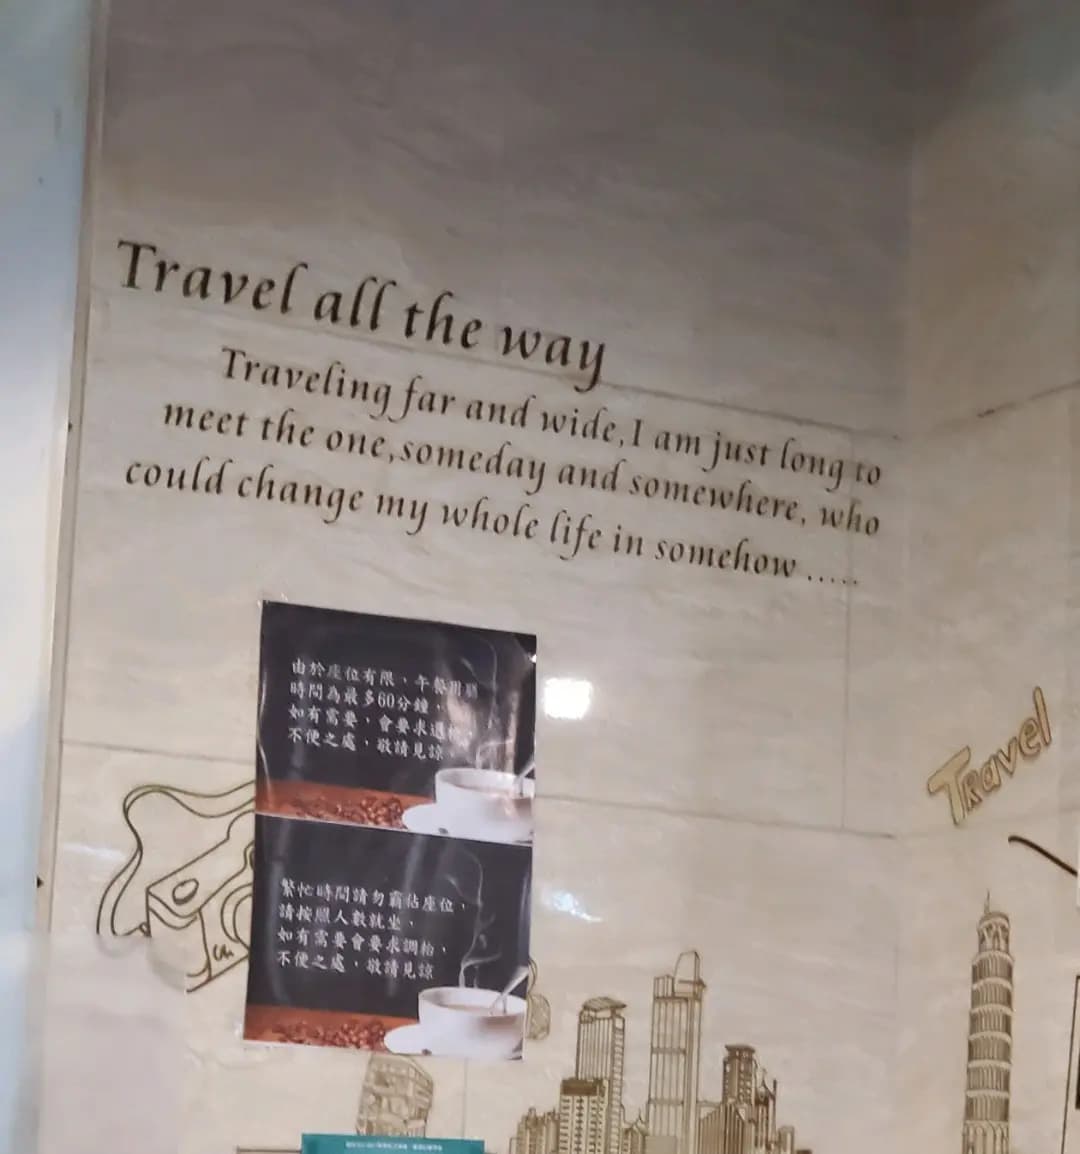 Travel all the way
Traveling far and wide,I am just long to
meet the one,someday and somewhere, who
could change my whole life in somehow .....
由於座位有限、午餐用膳
時間為最多60分鐘，
如有需要，會要求退枱，
不便之處，敬請見諒。
繁忙時間請勿霸佔座位，
請按照人數就坐，
如有需要會要求調枱，
不便之處，敬請見諒
Travel